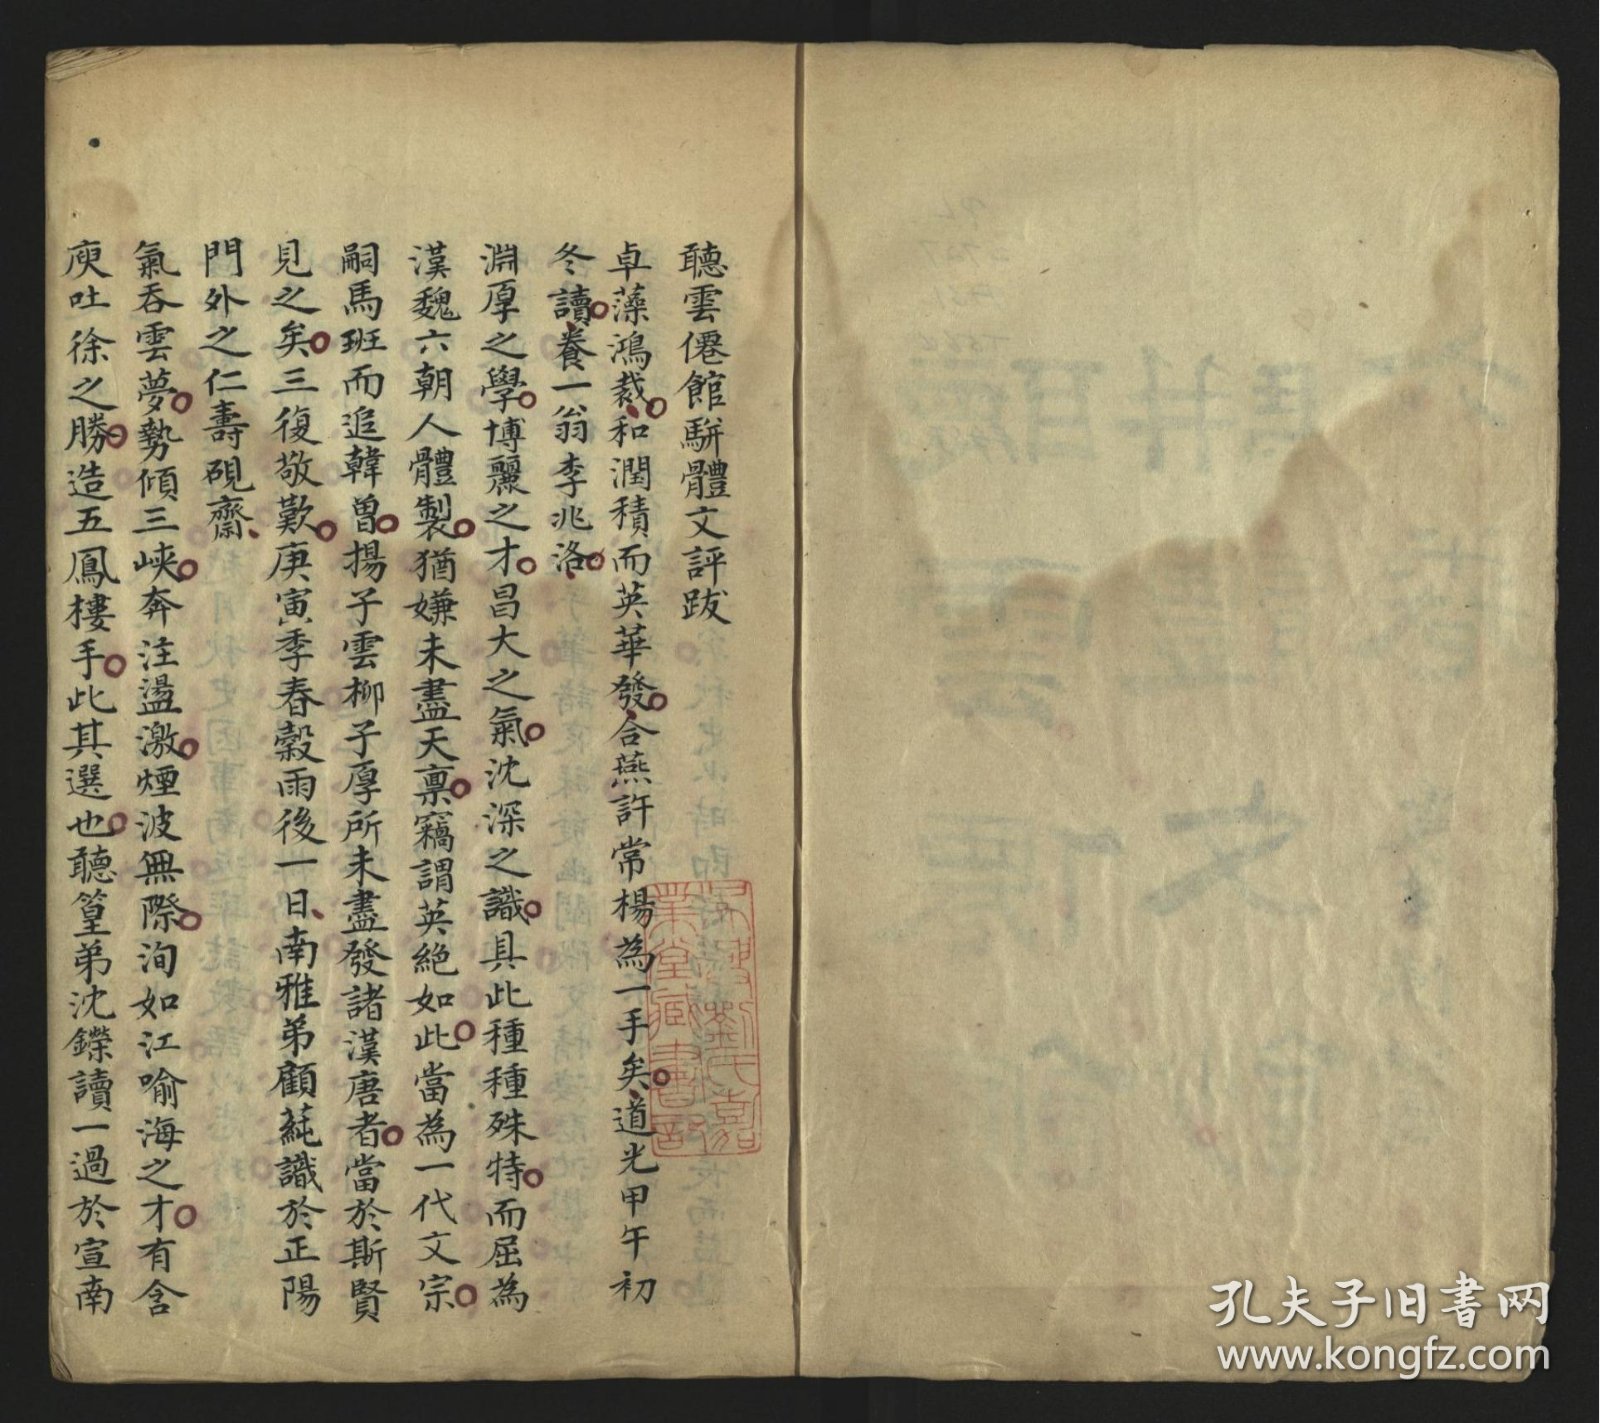 聽雲僊館駢體文評跋
卓藻鴻裁和潤積而英華發合燕許常楊為一手矣道光甲午初
冬讀養一翁李兆洛
淵厚之學博麗之才昌大之氣沈深之識具此種種殊特而屈為
漢魏六朝人體製猶嫌未盡天稟竊謂英絶如此當為一代文宗
嗣馬班而追韓曾揚子雲柳子厚所未盡發諸漢唐者當於斯賢
見之矣三復敬歎庚寅季春穀雨後一日南雅弟顧蒓識於正陽
門外之仁壽硯齋
氣吞雲夢勢傾三峽奔注盪激煙波無際洵如江喻海之才有含
庾吐徐之勝造五鳳樓手此其選也聽篁弟沈鑅讀一過於宣南
吳興劉氏嘉
業堂藏書印
孔夫子旧书网
www.kongfz.com